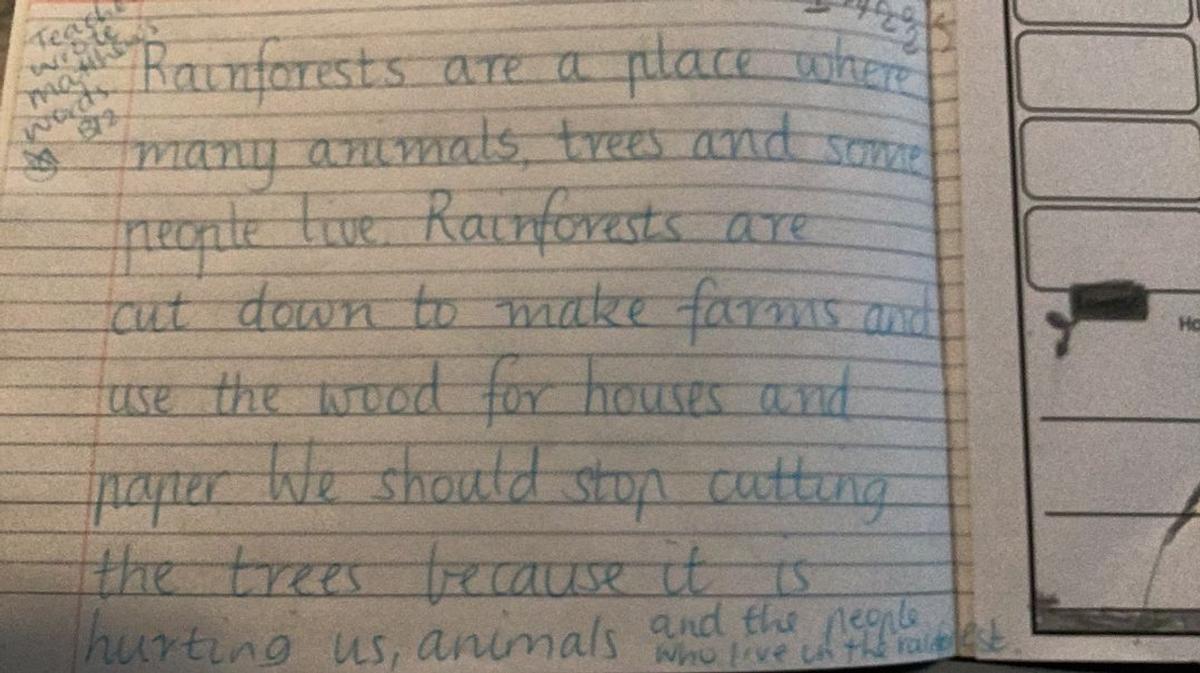 Teacher
wrote
maths
words
Rainforests are a place where
many animals, trees and some
people live. Rainforests are
cut down to make farms and
use the wood for houses and
paper We should stop cutting
the trees because it is
hurting us, animals and the people
who live in the rainforest.
Ho